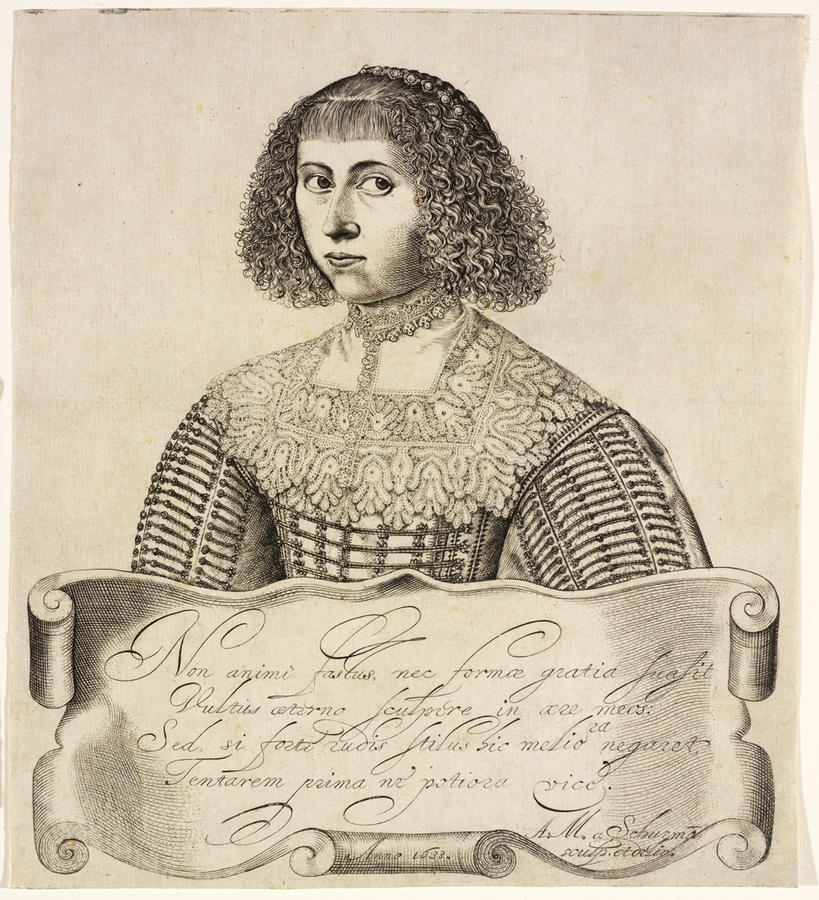 Non animi fastus, nec formæ gratia suasit
Vultus æterno sculpere in ære meos:
Sed, si forte rudis stilus hic meliora negaret,
Tentarem prima ne potiora vice.
A. M. a Schurmã
sculp. et delin.
Anno 1633.